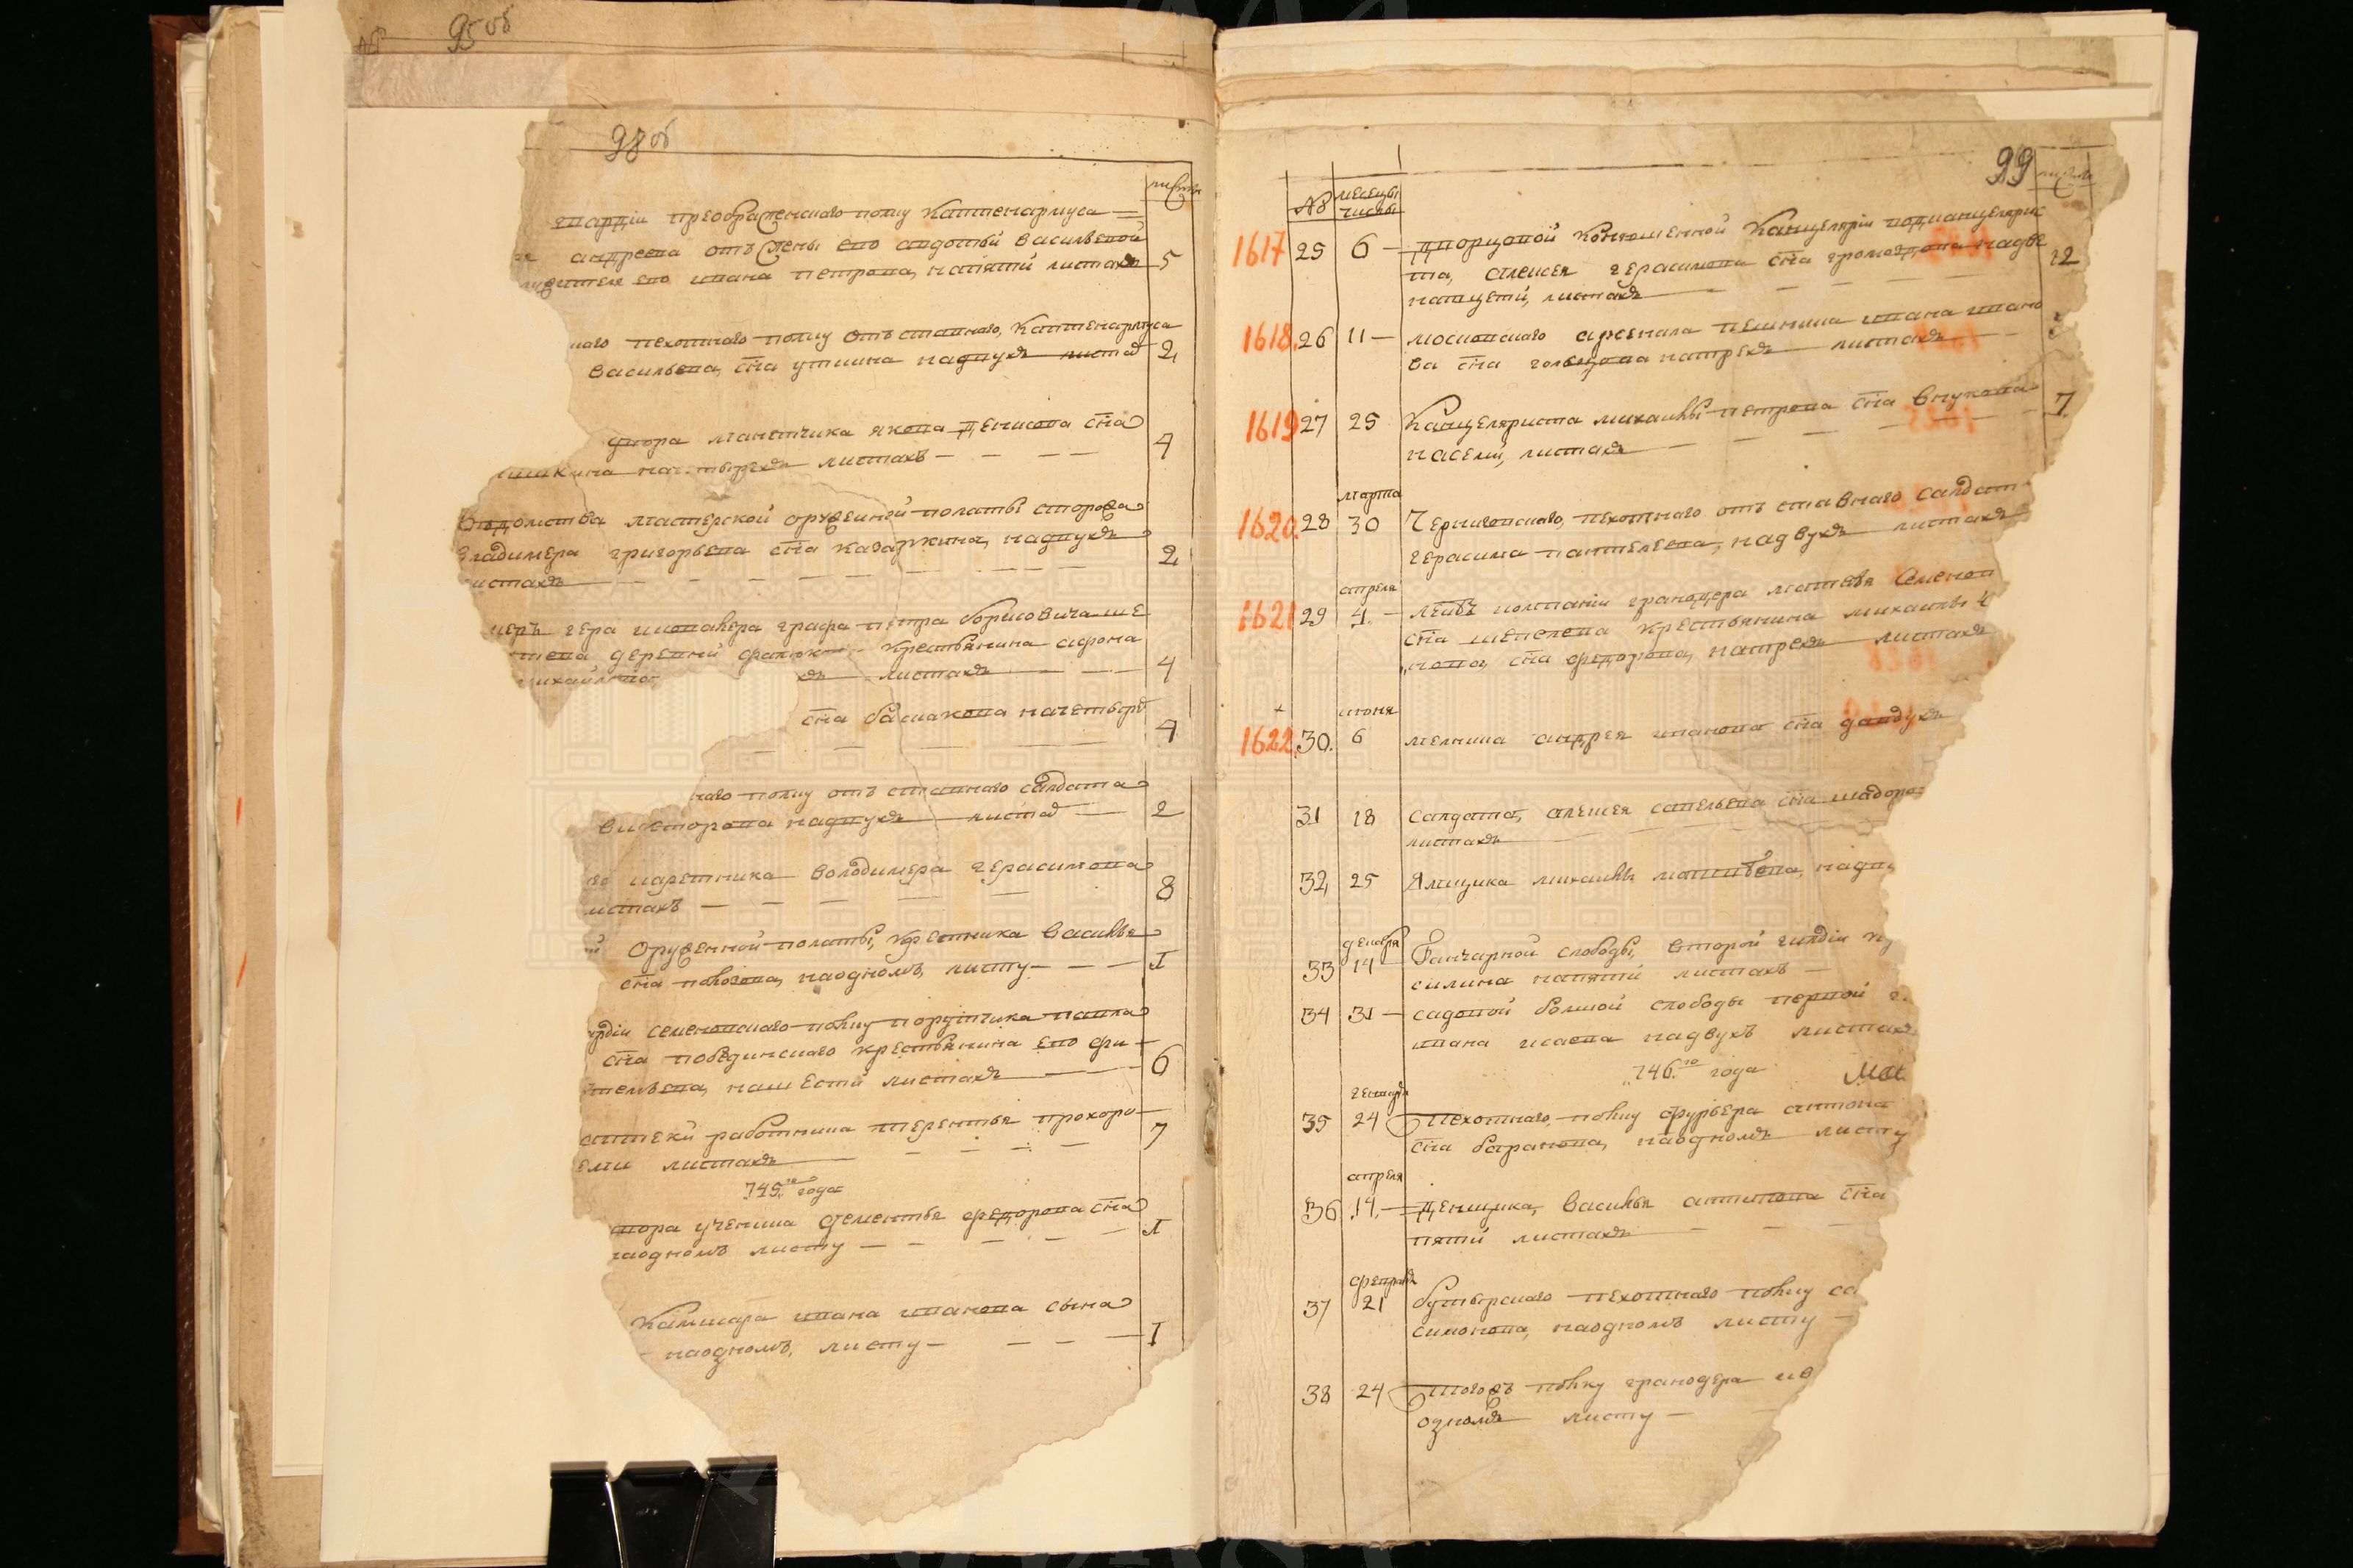 95 об
98 об
листы
гвардіи преображенского полку каптенармуса
андреева отъ жены его авдотьи васильевой
служителя его ивана петрова, на пяти листахъ 5
ного пехотнаго полку отъ ставнаго, каптенармуса
васильева, сна уткина на двухъ листах 2
двора манетчика якова денисова сна
на четырехъ листахъ 4
ведомства мастерской оружейной полаты сторожа
владимера григорьева сна казаркина, на двухъ
листахъ 2
графа петра борисовича ше
метева деревни крестьянина афона
михайлова хъ листахъ 4
сна басмакова на четырех
4
наго полку отъ ставнаго салдата
викторова на двухъ листах 2
го каретника володимера герасимова
листахъ 8
оружейной полаты, василья
сна на одномъ, листу I
гвардіи семеновскаго полку порутчика павла
сна победимского крестьянина его фи
тельева, на шести листахъ 6
аптеки работника терентья прохоро
семи листахъ 7
745 го года
двора ученика дементья федорова сна
на одномъ листу I
камисара ивана иванова сына
на одномъ, листу I
99
№ месецы числы листы
1617 25 6 дворцовой конюшенной канцеляріи подканцелярис
та, алексея герасимова сна громо на две
натцети, листахъ 12
1618. 26 11 московскаго арсенала ивана ивано
ва сна гольцова на трехъ листахъ 3
1619 27 25 канцеляриста михаилы петрова сна внукова
на семи, листахъ 7
марта
1620. 28 30 черниговскаго, пехотнаго отъ ставнаго салдат
герасима пантелеева, на двухъ листахъ
апреля
1621 29 4 лейбъ компаніи гранодера матвея семенов
сна шепелева крестьянина михаилы
сна федорова, на трехъ листахъ
июня
1622. 30. 6 мелника андрея иванова сна
31 18 салдата, алексея савельева сна
листахъ
32, 25 ямщика михаилы матвеева, на дв
декабря
33 14 ганчарной слободы, второй гилдіи ку
силина на пяти листахъ
34 31 садовой болшой слободы первой г
ивана исаева на двухъ листах
746 го года
генваря
35 24 пехотнаго, полку фурьера антона
сна баранова, на одномъ листу
апреля
36 14. денщика, василья антипова сна
пяти листахъ
феврал
37 21 бутырскаго пехотнаго полку са
симонова, на одномъ листу
38 24 тогожъ полку гранодера ив
одномъ листу